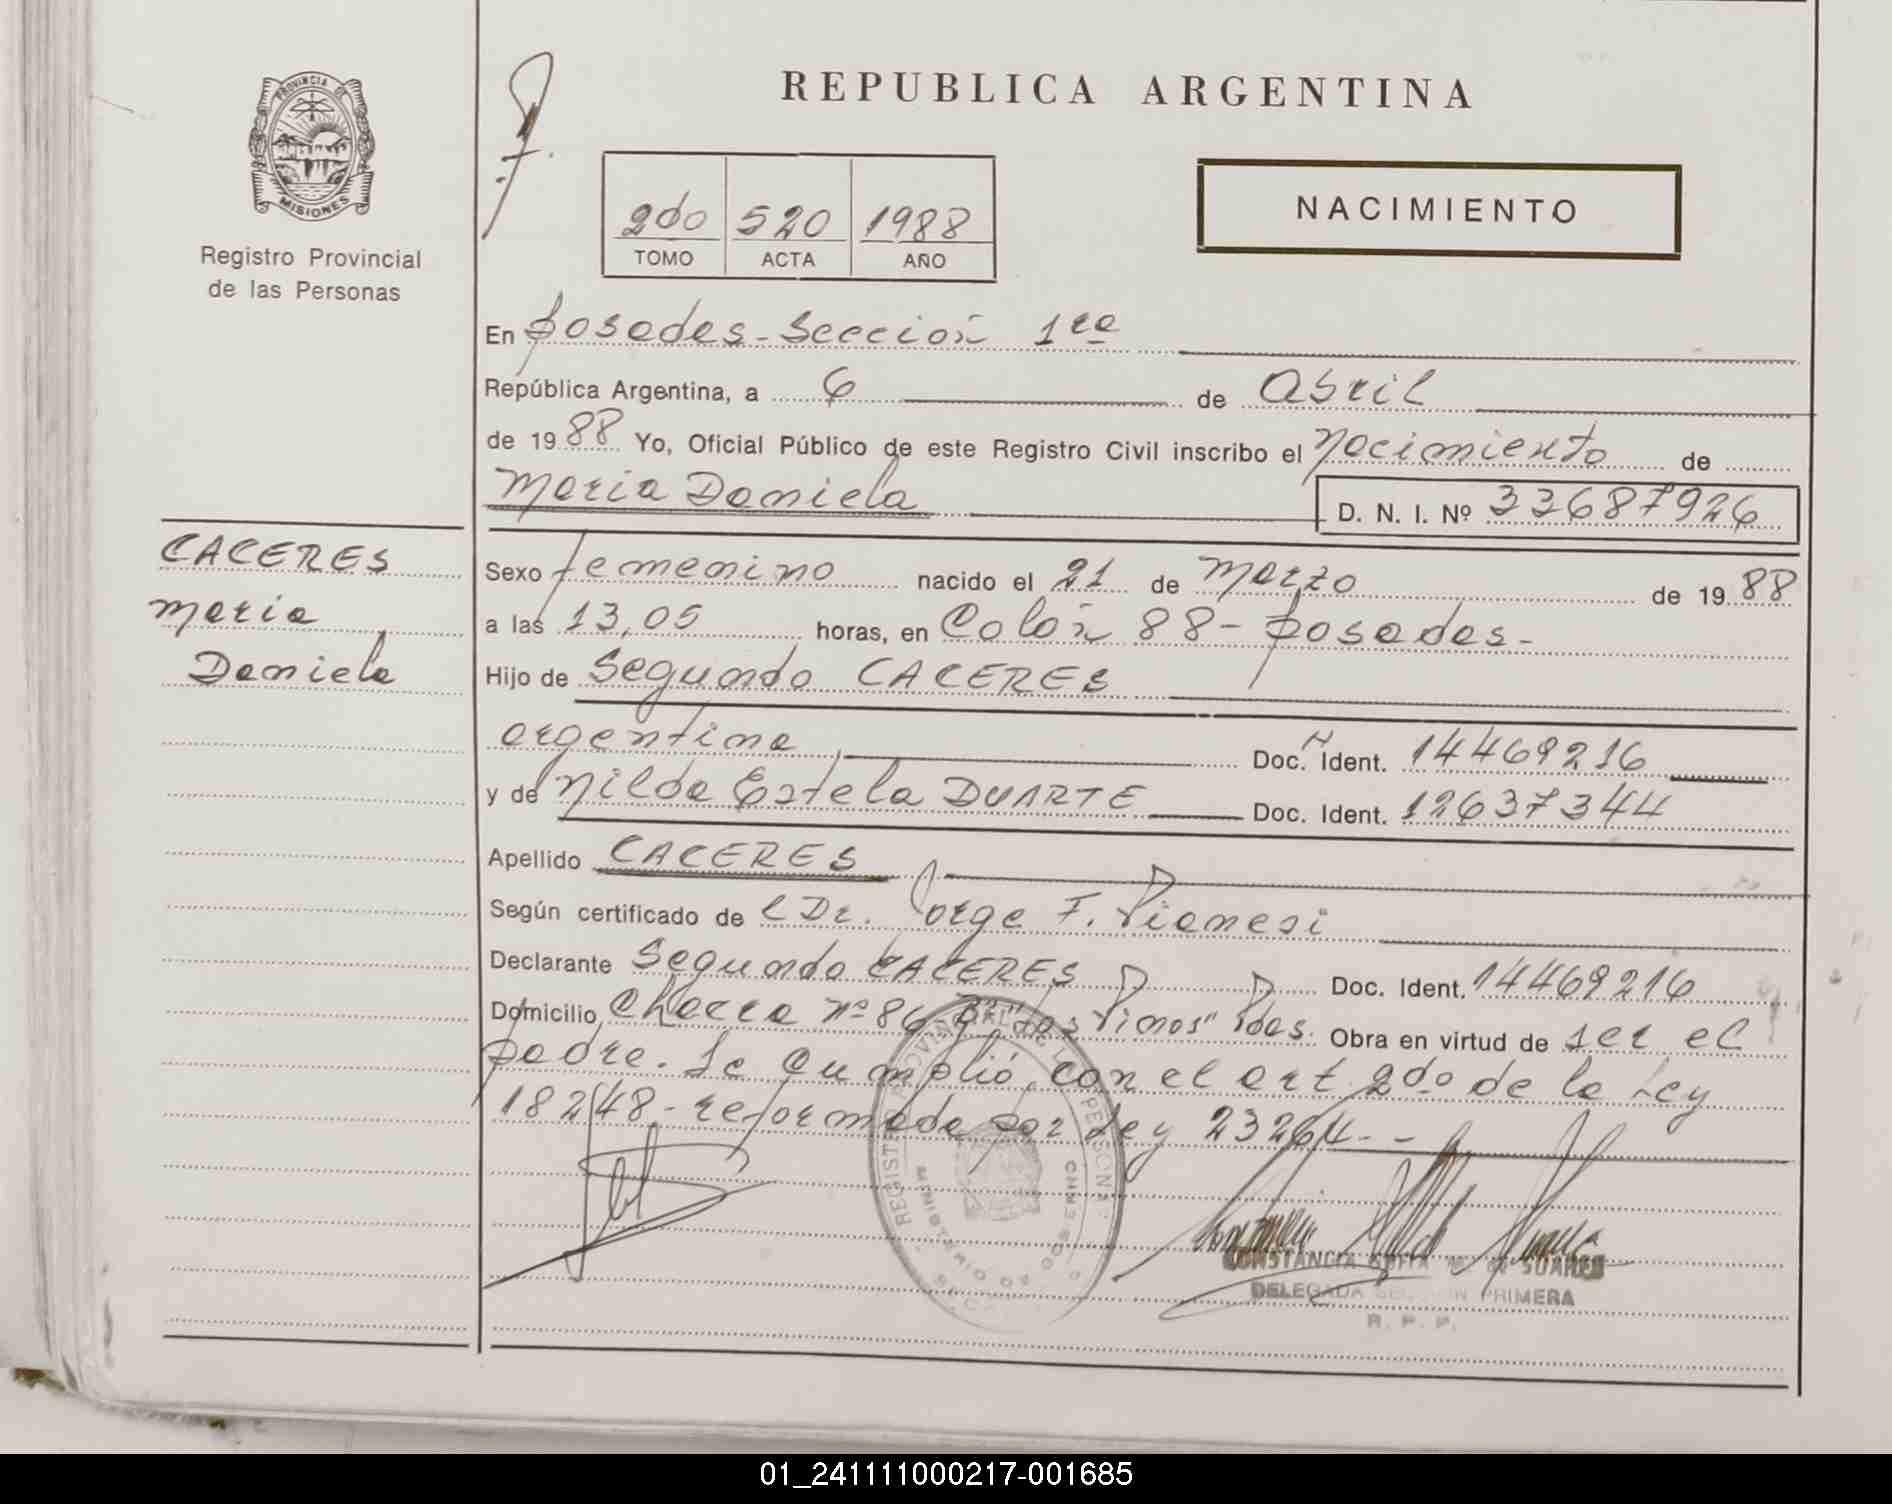 REPUBLICA ARGENTINA
PROVINCIA DE
MISIONES
Registro Provincial
de las Personas
2do 520 1988
TOMO ACTA AÑO
NACIMIENTO
En Posadas - Sección 1ra
República Argentina, a 6 de Abril
de 1988 Yo, Oficial Público de este Registro Civil inscribo el Nacimiento de
Maria Daniela
D. N. I. Nº 33687926
CACERES
Maria
Daniela
Sexo femenino nacido el 21 de Marzo de 1988
a las 13,05 horas, en Colón 88 - Posadas -
Hijo de Segundo CACERES
argentina Doc. Ident. 14469216
y de Nilda Estela DUARTE Doc. Ident. 12637344
Apellido CACERES
Según certificado de el Dr. Jorge F. Pianesi
Declarante Segundo CACERES Doc. Ident. 14469216
Domicilio Chacra nº 86 Bº "Los Pinos" Pdas. Obra en virtud de ser el
padre. Se cumplió con el art 2do de la Ley
18248 - reformada por Ley 23264 - -
REGISTRO PROVINCIAL DE LAS PERSONAS
MINISTERIO DE GOBIERNO
CONSTANCIA SUAREZ
DELEGADA SECCION PRIMERA
R. P. P.
01_241111000217-001685